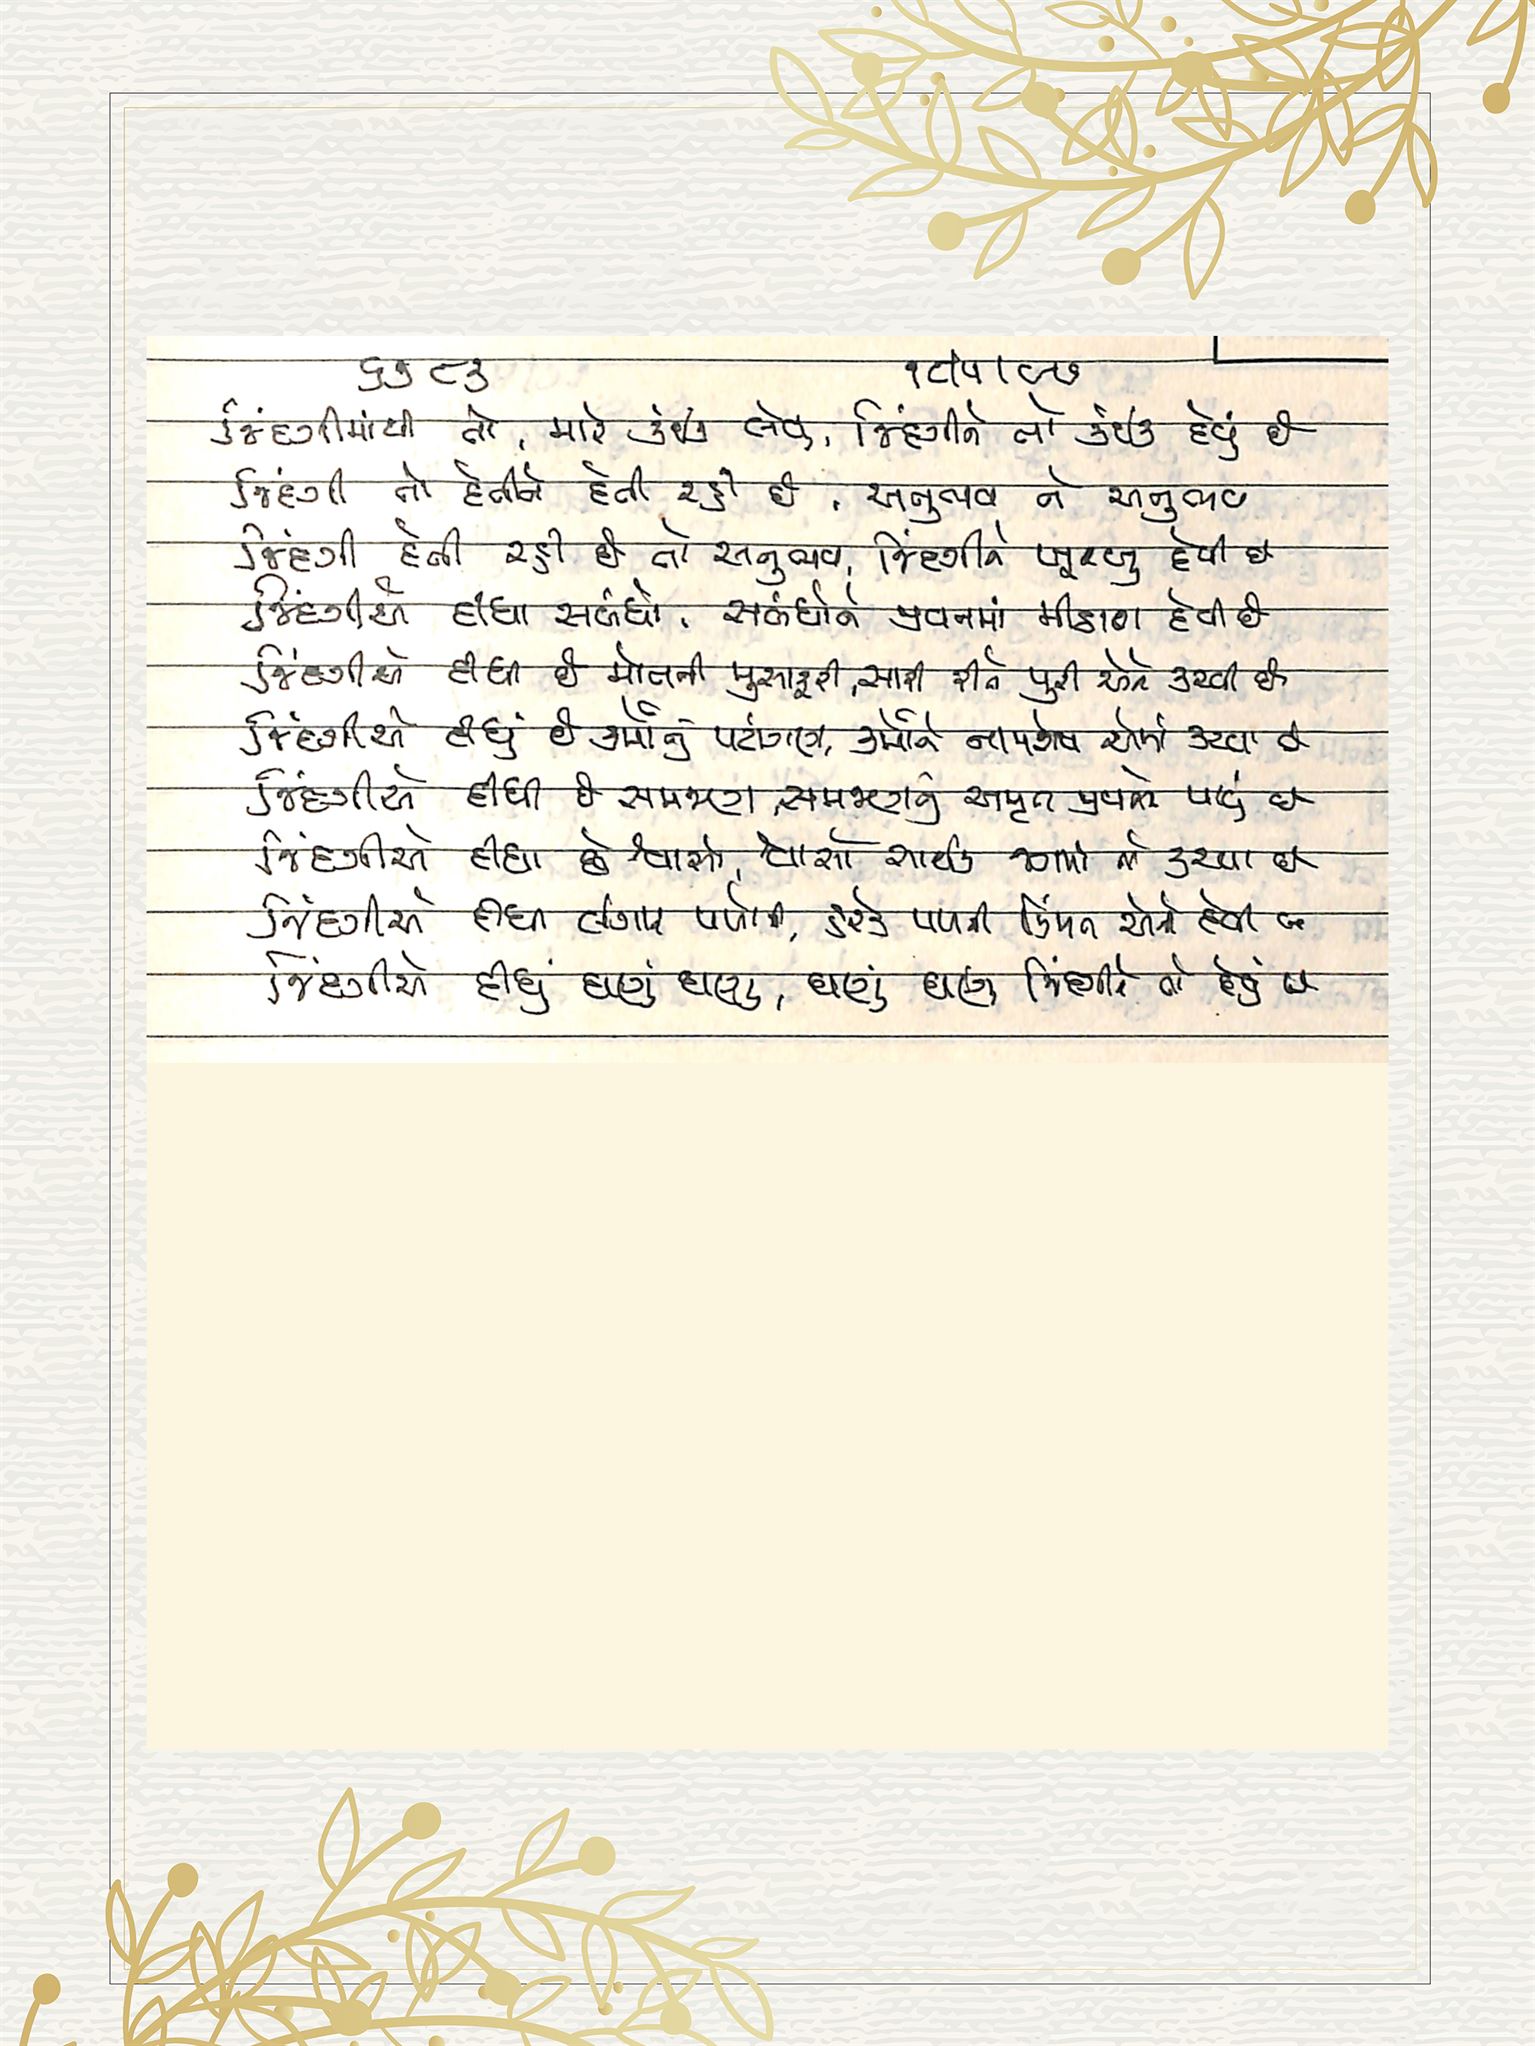 ૬૧૮૩ ૧૮/૫/૮૭
જિંદગીમાંથી તો, મારે કંઈક લેવું, જિંદગીને તો કંઈક દેવું છે
જિંદગી તો દેતીને દેતી રહી છે, અનુભવ ને અનુભવ
જિંદગી દેતી રહી છે તો અનુભવ, જિંદગીને દેવી છે
જિંદગીએ દીધા સબંધો, સબંધોને જીવનમાં મીઠાશ દેવી છે
જિંદગીએ દીધી છે મોતની મુસાફરી, સારી રીતે પુરી એને કરવી છે
જિંદગીએ દીધું છે કર્મોનું પટાંગણ, કર્મોને નામશેષ એમાં કરવા છે
જિંદગીએ દીધી છે સમજણ, સમજણનું અમૃત જીવનને પાવું છે
જિંદગીએ દીધા છે શ્વાસો, શ્વાસો સાર્થક જગમાં તો કરવા છે
જિંદગીએ દીધી લંગાર પળોની, હરેક પળની કિંમત એને દેવી છે
જિંદગીએ દીધું ઘણું ઘણું, ઘણું ઘણું જિંદગીને તો દેવું છે